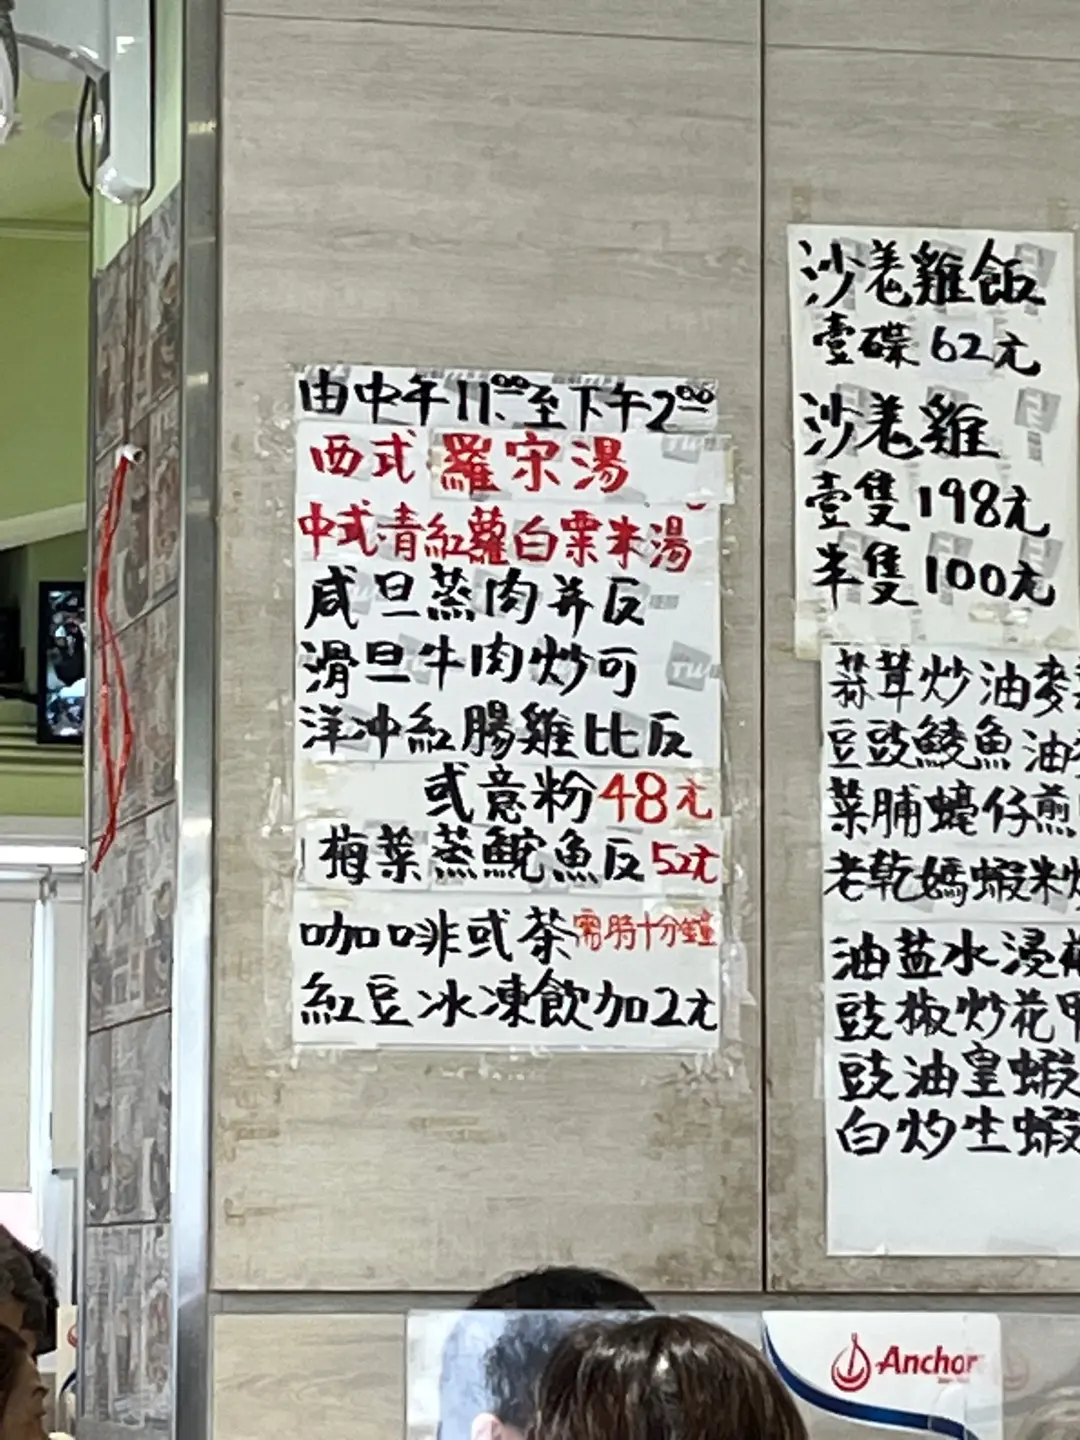 由中午11:00至下午2:00
西式羅宋湯
中式青紅蘿蔔粟米湯
咸旦蒸肉弁反
滑旦牛肉炒可
洋沖紅腸雞比反
或意粉48元
梅菜蒸鯇魚反52元
咖啡或茶需時十分鐘
紅豆冰凍飲加2元
沙羌雞飯
壹碟62元
沙羌雞
壹隻198元
半隻100元
蒜茸炒油麥
豆豉鯪魚油
菜脯蠔仔煎
老乾媽蝦米炒
油盐水浸
豉椒炒花甲
豉油皇蝦
白灼生蝦
Anchor